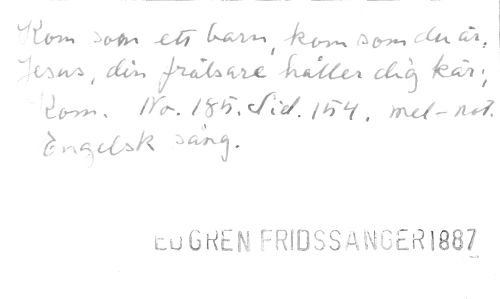 Kom som ett barn, kom som du är,
Jesus, din frälsare håller dig kär;
Kom. No. 185. Sid. 154. mel-not.
Engelsk sång.
EDGREN FRIDSSANGER 1887